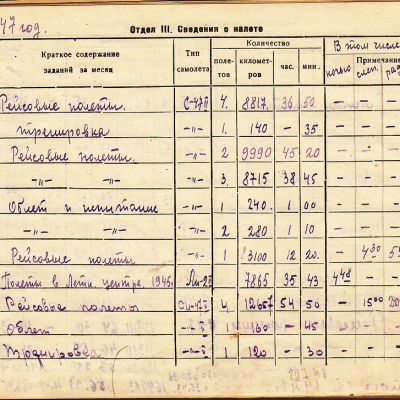 47 год.
Отдел III. Сведения о налете
Краткое содержание заданий за месяц | Тип самолета | Количество | В том числе
полетов | километров | час. | мин. | ночью | слеп. | Примечание
Рейсовые полеты. | С-47 | 4. | 8817. | 36 | 50 | — | — | —
тренировка | -"- | 1. | 140 | — | 35 | — | — | —
Рейсовые полеты. | -"- | 2 | 9990 | 45 | 20 | — | — | —
-"- -"- | -"- | 3. | 8715 | 38 | 45 | — | — | —
Облет и испытание | -"- | 1 | 240. | 1 | 00 | — | — | —
-"- -"- | -"- | 2 | 280 | 1 | 10 | — | — | —
Рейсовые полеты | -"- | 1 | 3100 | 12 | 20. | — | 4 30
Полеты в Летн. центре. 1946г. | Ли-2 | 7865 | 35 | 43 | 4 48 | — | —
Рейсовые полеты | 4 | 12657 | 54 | 50 | — | 15 00
Облет | 1 | 160 | — | 45 | — | — | —
Тренировка | 1 | 120 | — | 30 | — | — | —